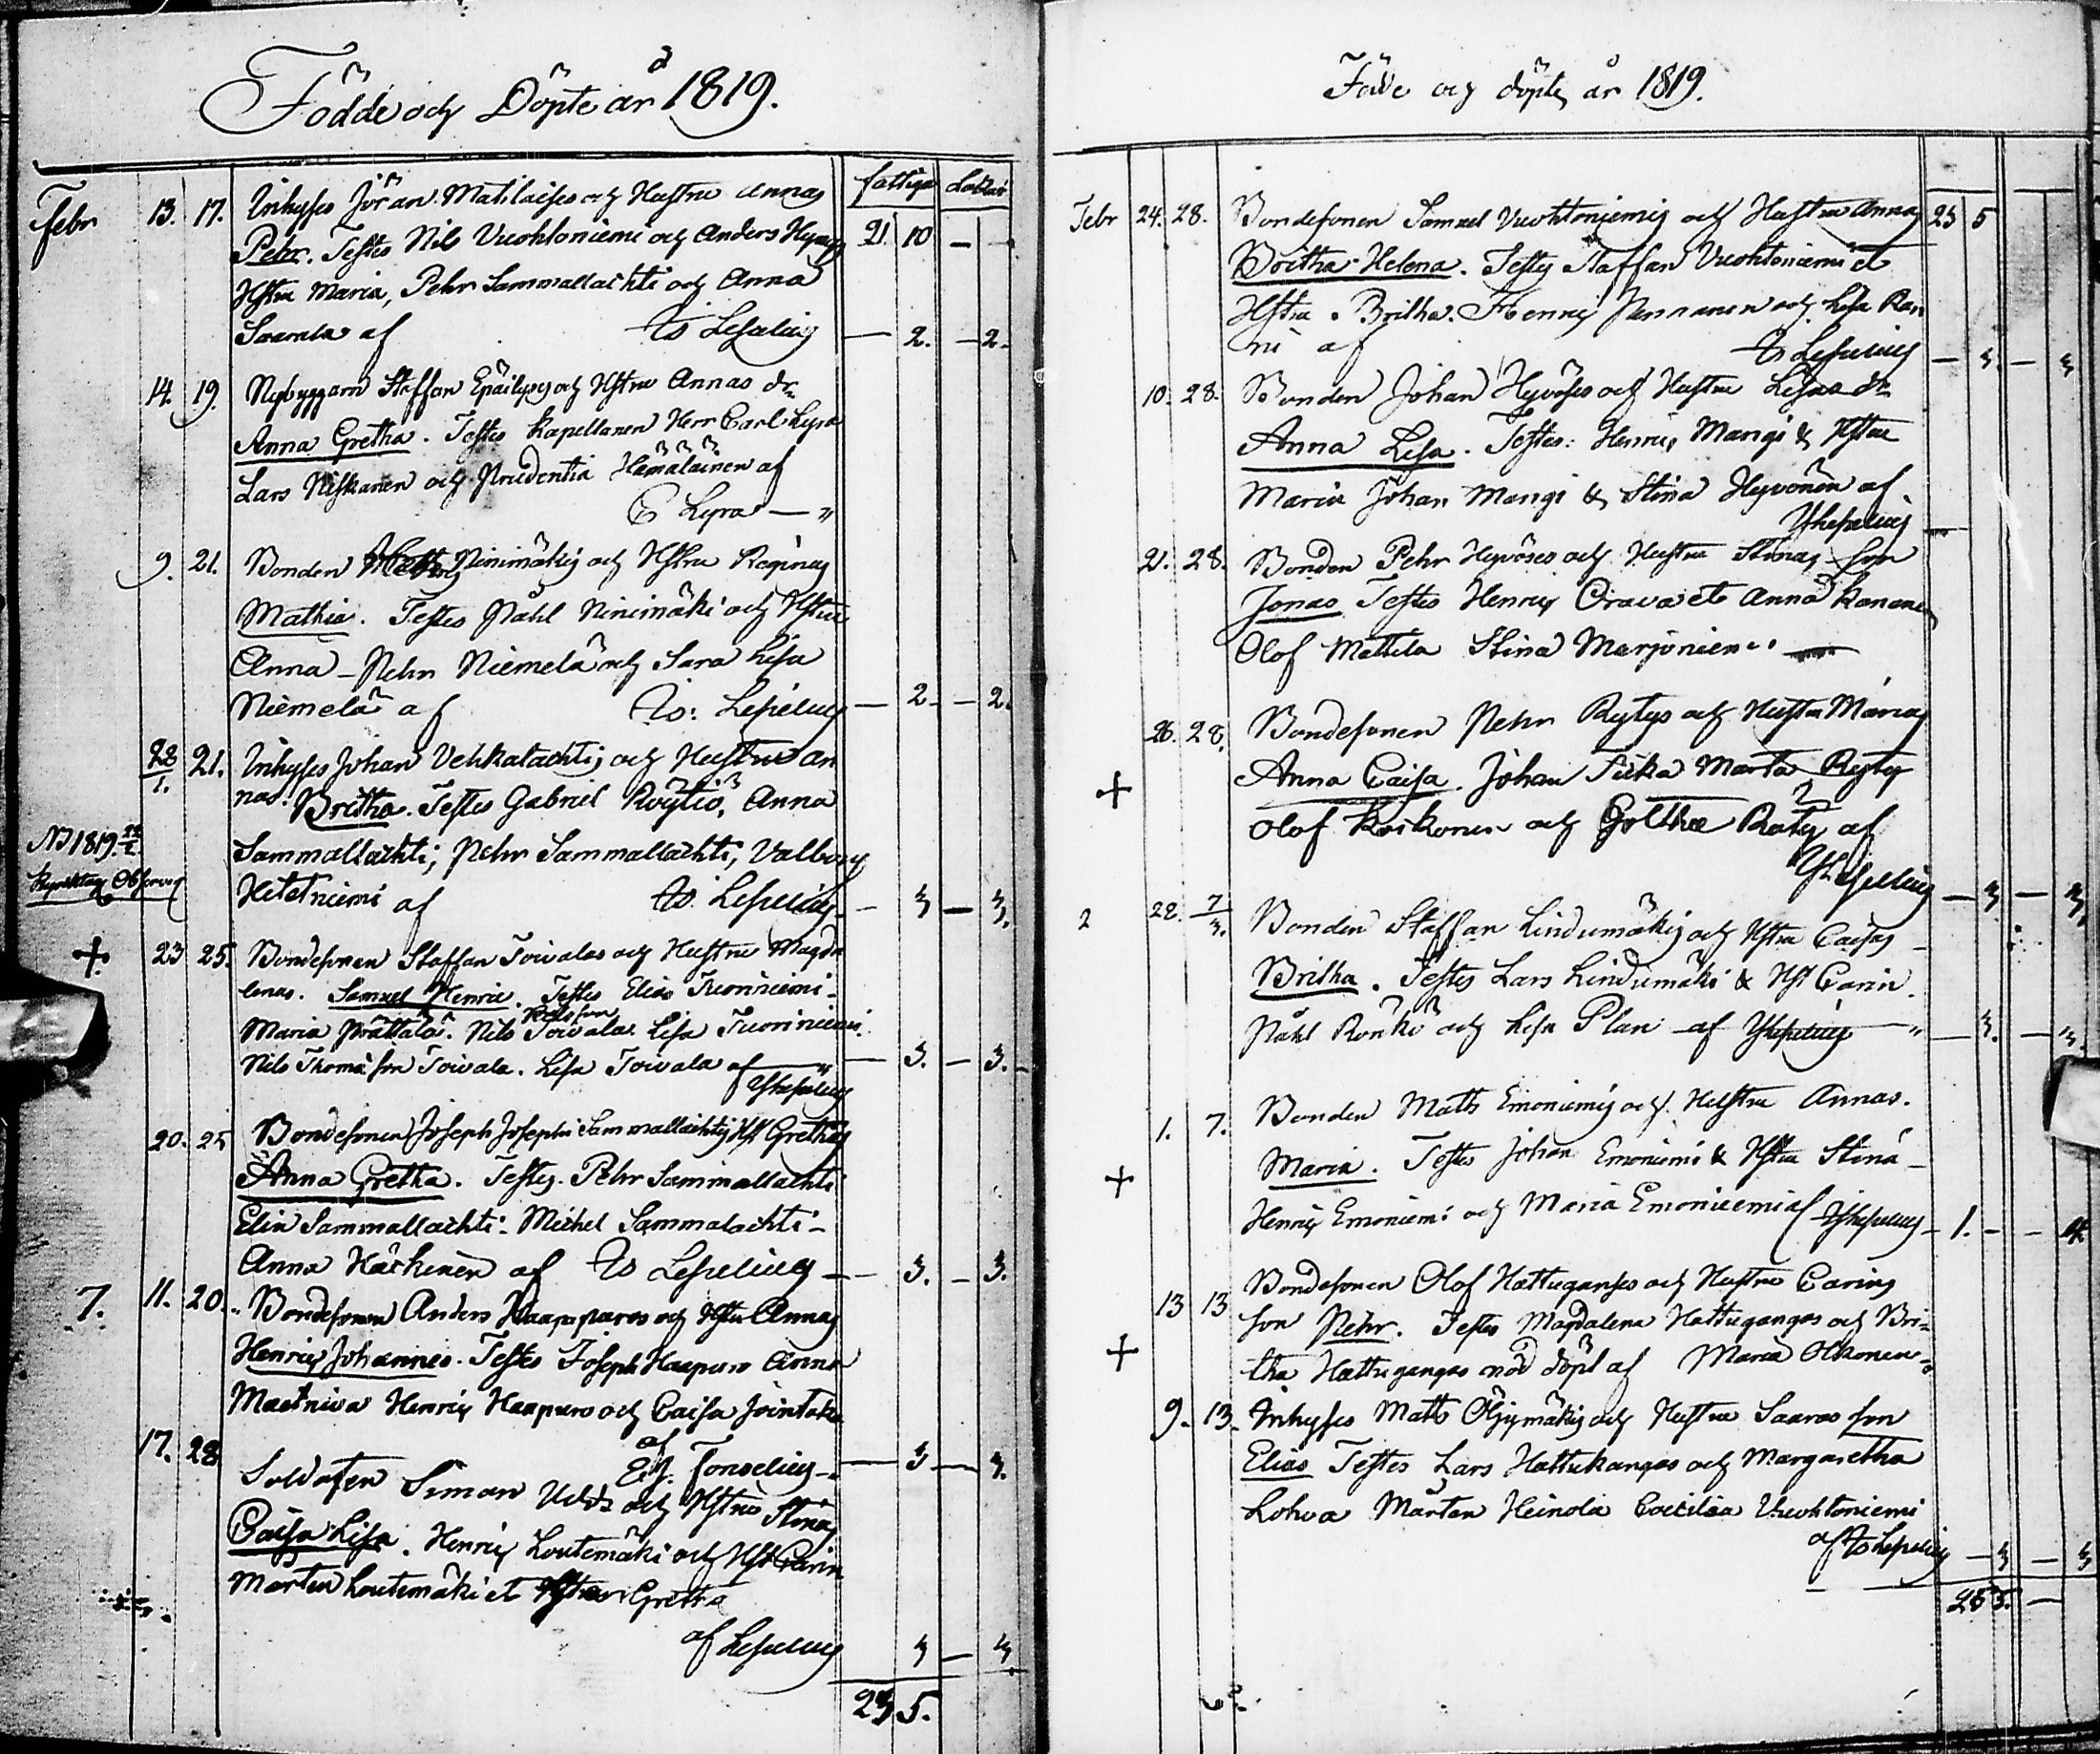 Födde och Döpte år 1819.
fattiga
Febr 13. 17. Inhyses Jöran Matilaises och Hustru Annas
Pehr. Testes Nils Vuohtoniemi och Anders 21. 10 —
Hstru Maria, Pehr Sammallachti och Anna
Saarela af — 2. — 2.
14. 19. Nybyggarn Staffan Epäilys och Hstru Annas dr
Anna Gretha. Testes Kapellanen Herr Carl Lyra
Lars Niskanen och Prudentia Hämäläinen af
C Lyra — "
9. 21. Bonden Niinimäkis och Hstru Reginas
Mathias. Testes Påhl Niinimäki och Hstru
Anna - Pehr Niemelä och Sara Lisa
Niemelä af — 2. — 2.
22/1. 21. Inhyses Johan Vehkalachtis och Hustrus An
nas. Britha. Testes Gabriel Röytiö, Anna
NB 1819. Sammallachti; Pehr Sammallachti, Valborg
Hietaniemi af — 3 — 3.
+ 23 25. Bondesonen Staffan Toivalas och Hustru Magda
lenas. Samuel Henric. Testes Elias Tuoriniemi -
Maria Prättälä. Nils Toivala Lisa Tuoriniemi
Nils Thomæson Toivala. Lisa Toivala af — 3. — 3.
20. 25 Bondesonen Joseph Josephi Sammallachtis Hst Grethas
Anna Gretha. Testes. Pehr Sammallachti
Elin Sammallachti - Michel Sammalachti -
Anna Härkönen af — 3. — 3.
7. 11. 20. Bondesonen Anders Haapapuros och Hstru Annas
Henric Johannes. Testes Joseph Haapuro Anna
Henric Haapuro och Caisa
af
— 3 — 3.
17. 28 Soldaten Simon och Hstrus Stinas
Caisa Lisa. Henric Loutemäki och Hst Carin
Mårten Loutemäki et Hstru Gretha
af — 3 — 3.
23 5.
Födde och döpte år 1819.
Febr 24. 28. Bondesonen Samuel Vuohtoniemis och Hustru Annas 23 5
Britha Helena. Testes Staffan Vuohtoniemi et
Hstru Britha. Henric och Lisa
af — 3. — 3
10. 28. Bonden Johan Hyvöses och Hustru Lisas dr
Anna Lisa. Testes: Henric Mangi & Hstru
Maria Johan Mangi & Stina Hyvönen af
21. 28. Bonden Pehr Hyvöses och Hustru Stinas son
Jonas Testes Henric Orava et Anna
Olof Mattila Stina —
26. 28. Bondesonen Pehr Rytys och Hustru Marias
+ Anna Caisa. Johan Marta Ryty
Olof Koikonen och Gretha Räty af
— 3 — 3.
2 28. 7/3. Bonden Staffan Lindumäkis och Hstru Caisas -
Britha. Testes Lars Lindumäki & Hst Carin
Påhl Rönkö och Lisa Plan - af " — 3. — 3.
1. 7. Bonden Matts Emoniemis och Hustru Annas.
+ Maria. Testes Johan Emoniemi & Hstru Stina -
Henric Emoniemi och Maria Emoniemi af — 1. —
13 13 Bondesonen Olof Hattugangas och Hustru Carins
+ son Pehr. Testes Magdalena Hattugangas och Bri-
tha Hattugangas nöd döpt af Maria Olkonen
9. 13. Inhyses Matts Öljymäkis och Hustru Saaras son
Elias Testes Lars Hattukangas och Margaretha
Lohva Mårten Heinola Caecilia Vuohtoniemi
af — 3 — 3